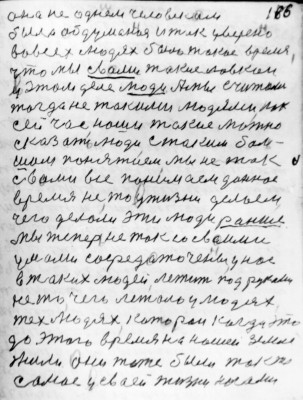 186
она не одном человеком
была обдумана и так уверено
во всех людях было такое время
что мы свами такие ловкаи
у этом деле люди Аты считали
тогда не такими людями как
сей час наши такие можно
сказать люди с таким бал-
шом понятием мы не так
свами все понимаем данное
время не то у жизни делаем
чего делали эти люди ранше
мы теперь не так со своими
умами сосредоточены у нас
в таких людей летит под руками
не то чего летало у людях
тех людях которои когда это
до этого время на нашей земле
жили они тоже были такое
самое у своей жизни